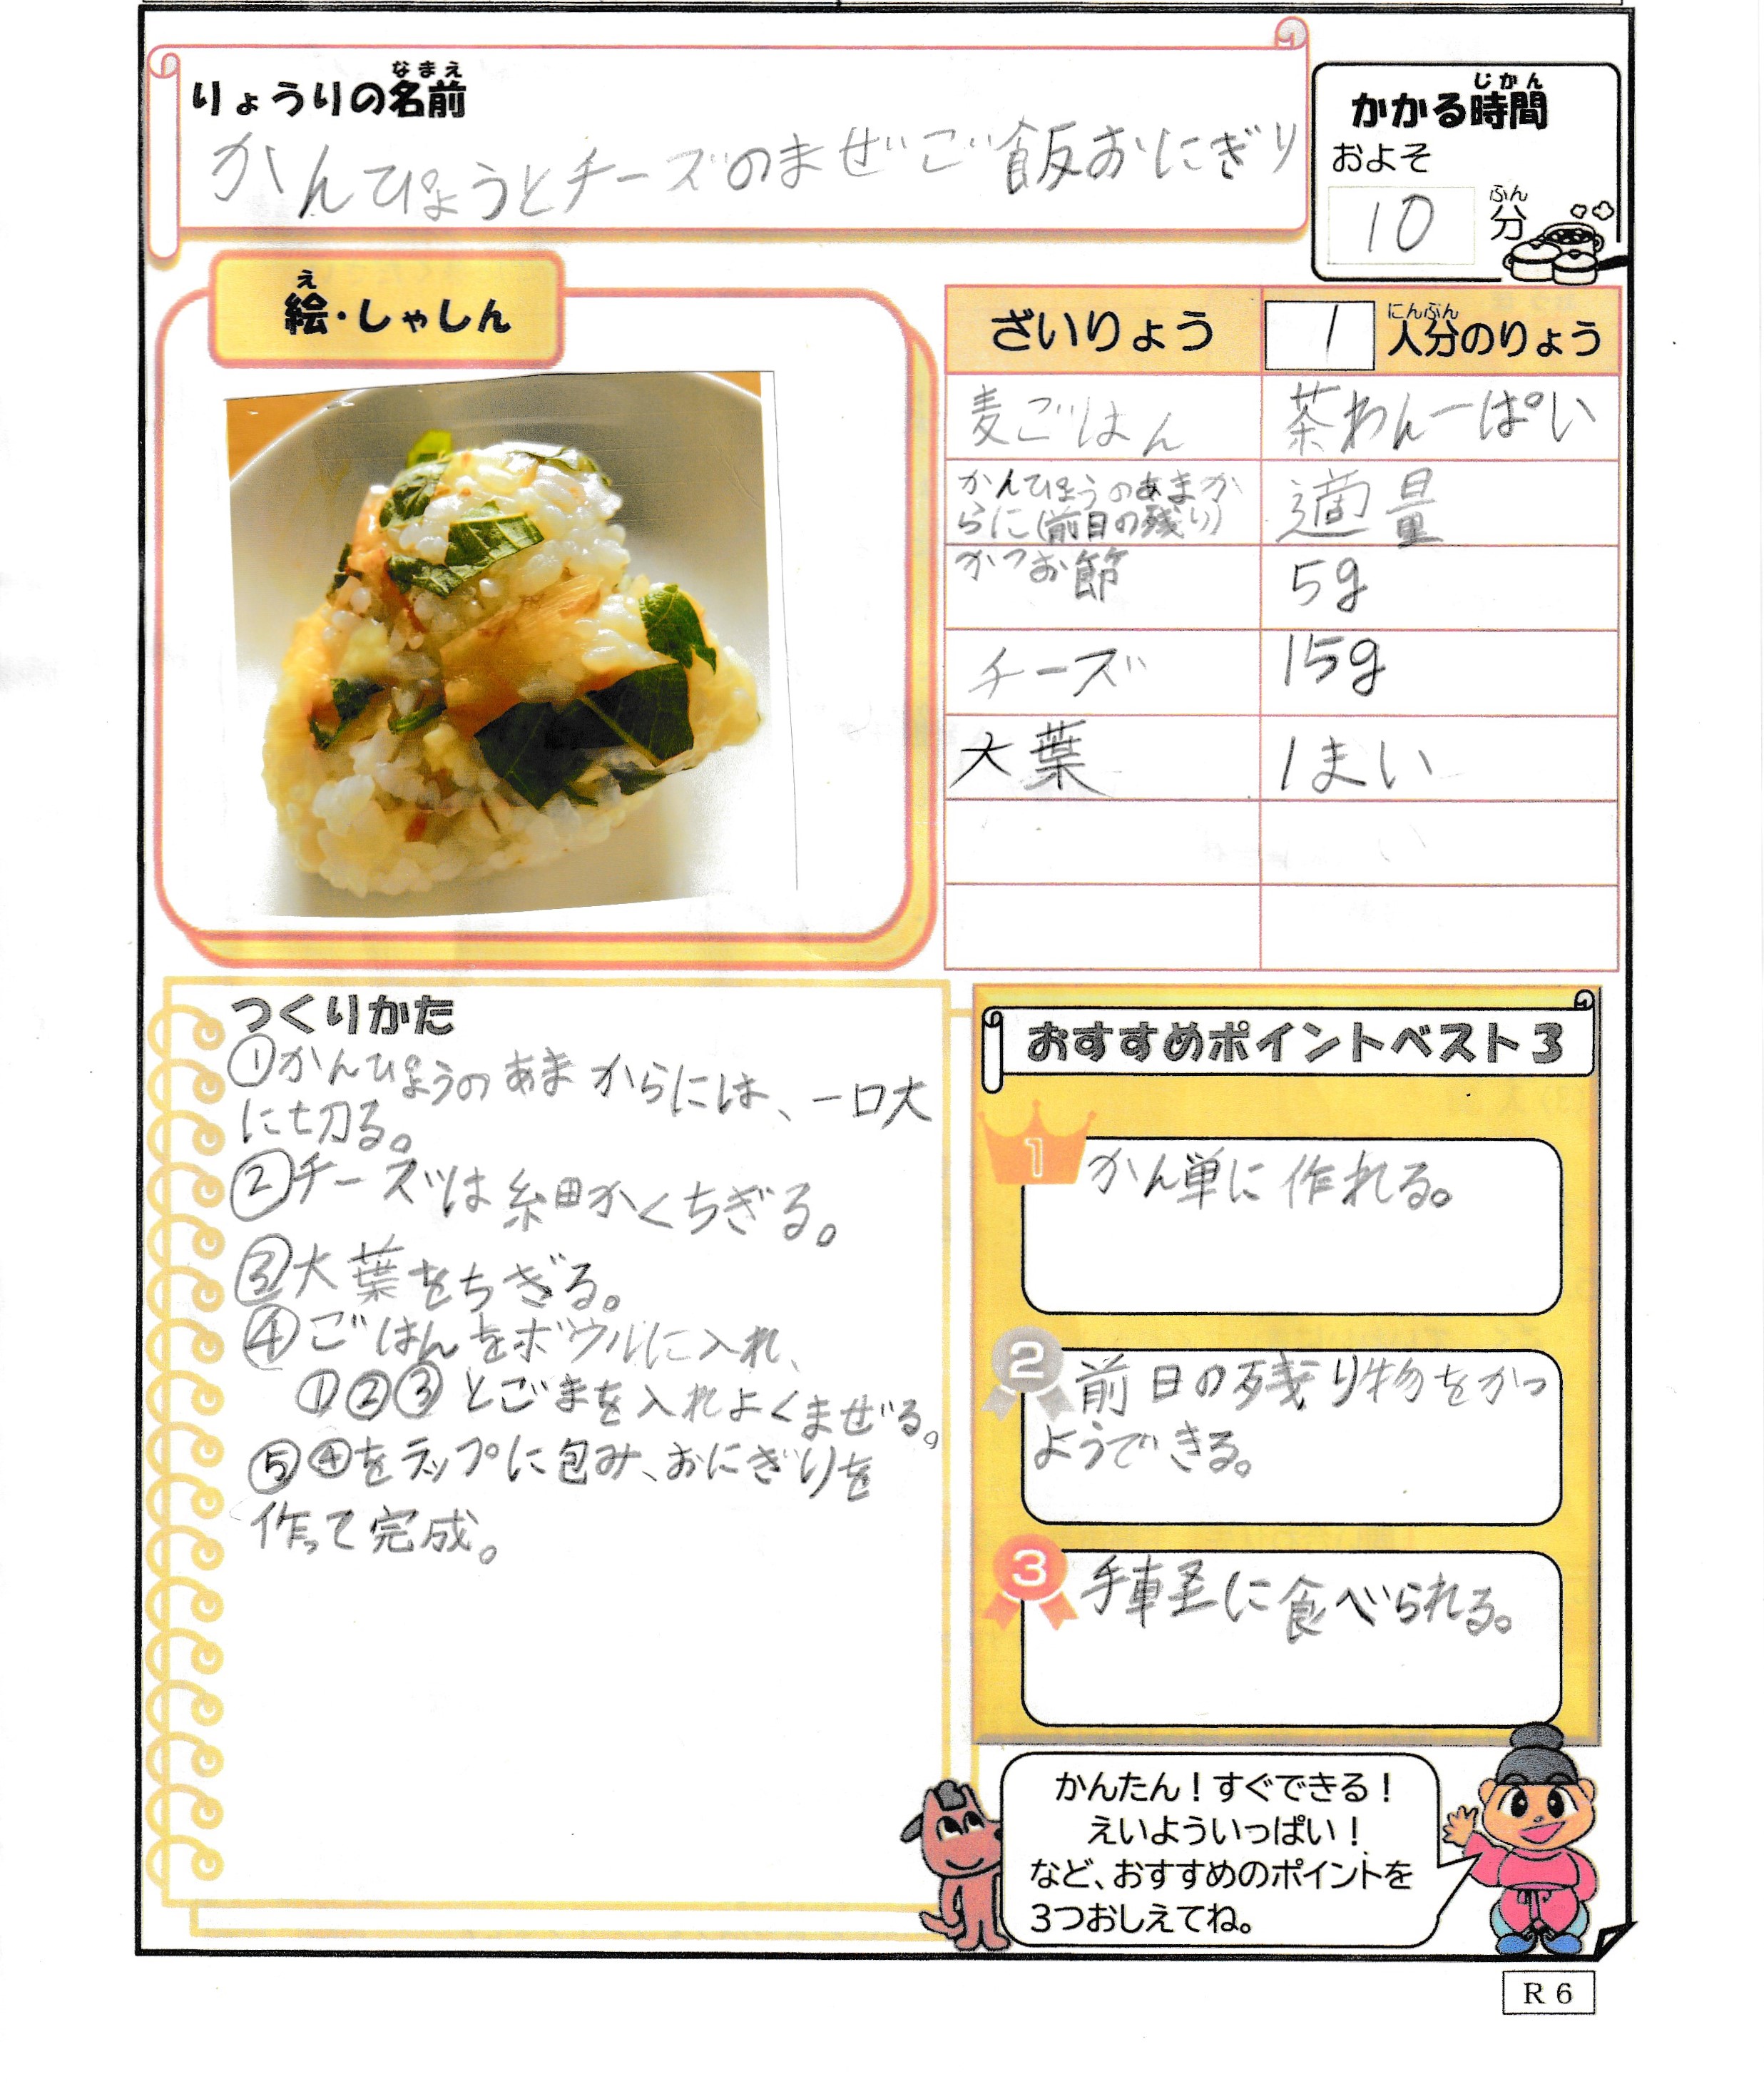 りょうりの名前
なまえ
かんぴょうとチーズのまぜご飯おにぎり
かかる時間
じかん
およそ
10分
ふん
絵・しゃしん
え
ざいりょう 1人分のりょう
にんぶん
麦ごはん 茶わん一ぱい
かんぴょうのあまか
らに(前日の残り) 適量
かつお節 5g
チーズ 15g
大葉 1まい
つくりかた
①かんぴょうのあまからには、一口大
に切る。
②チーズは細かくちぎる。
③大葉をちぎる。
④ごはんをボウルに入れ、
①②③とごまを入れよくまぜる。
⑤④をラップに包み、おにぎりを
作って完成。
おすすめポイントベスト3
1
かん単に作れる。
2
前日の残り物をかつ
ようできる。
3
手軽に食べられる。
かんたん！すぐできる！
えいよういっぱい！
など、おすすめのポイントを
3つおしえてね。
R6